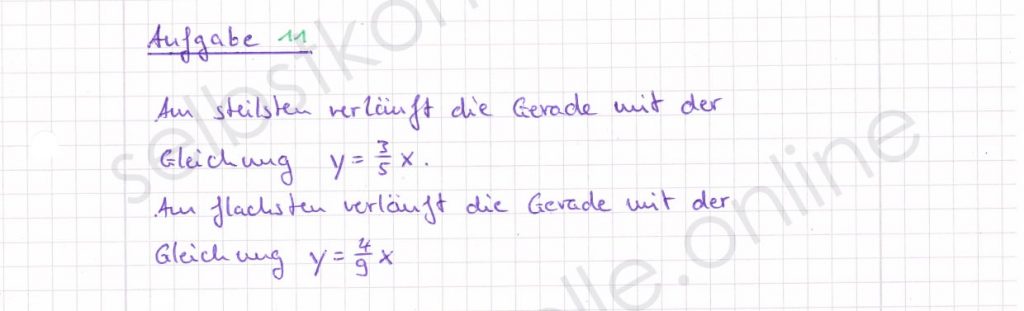 Aufgabe 11
Am steilsten verläuft die Gerade mit der
Gleichung y = 3/5 x.
Am flachsten verläuft die Gerade mit der
Gleichung y = 4/9 x
selbstkon
lle.online